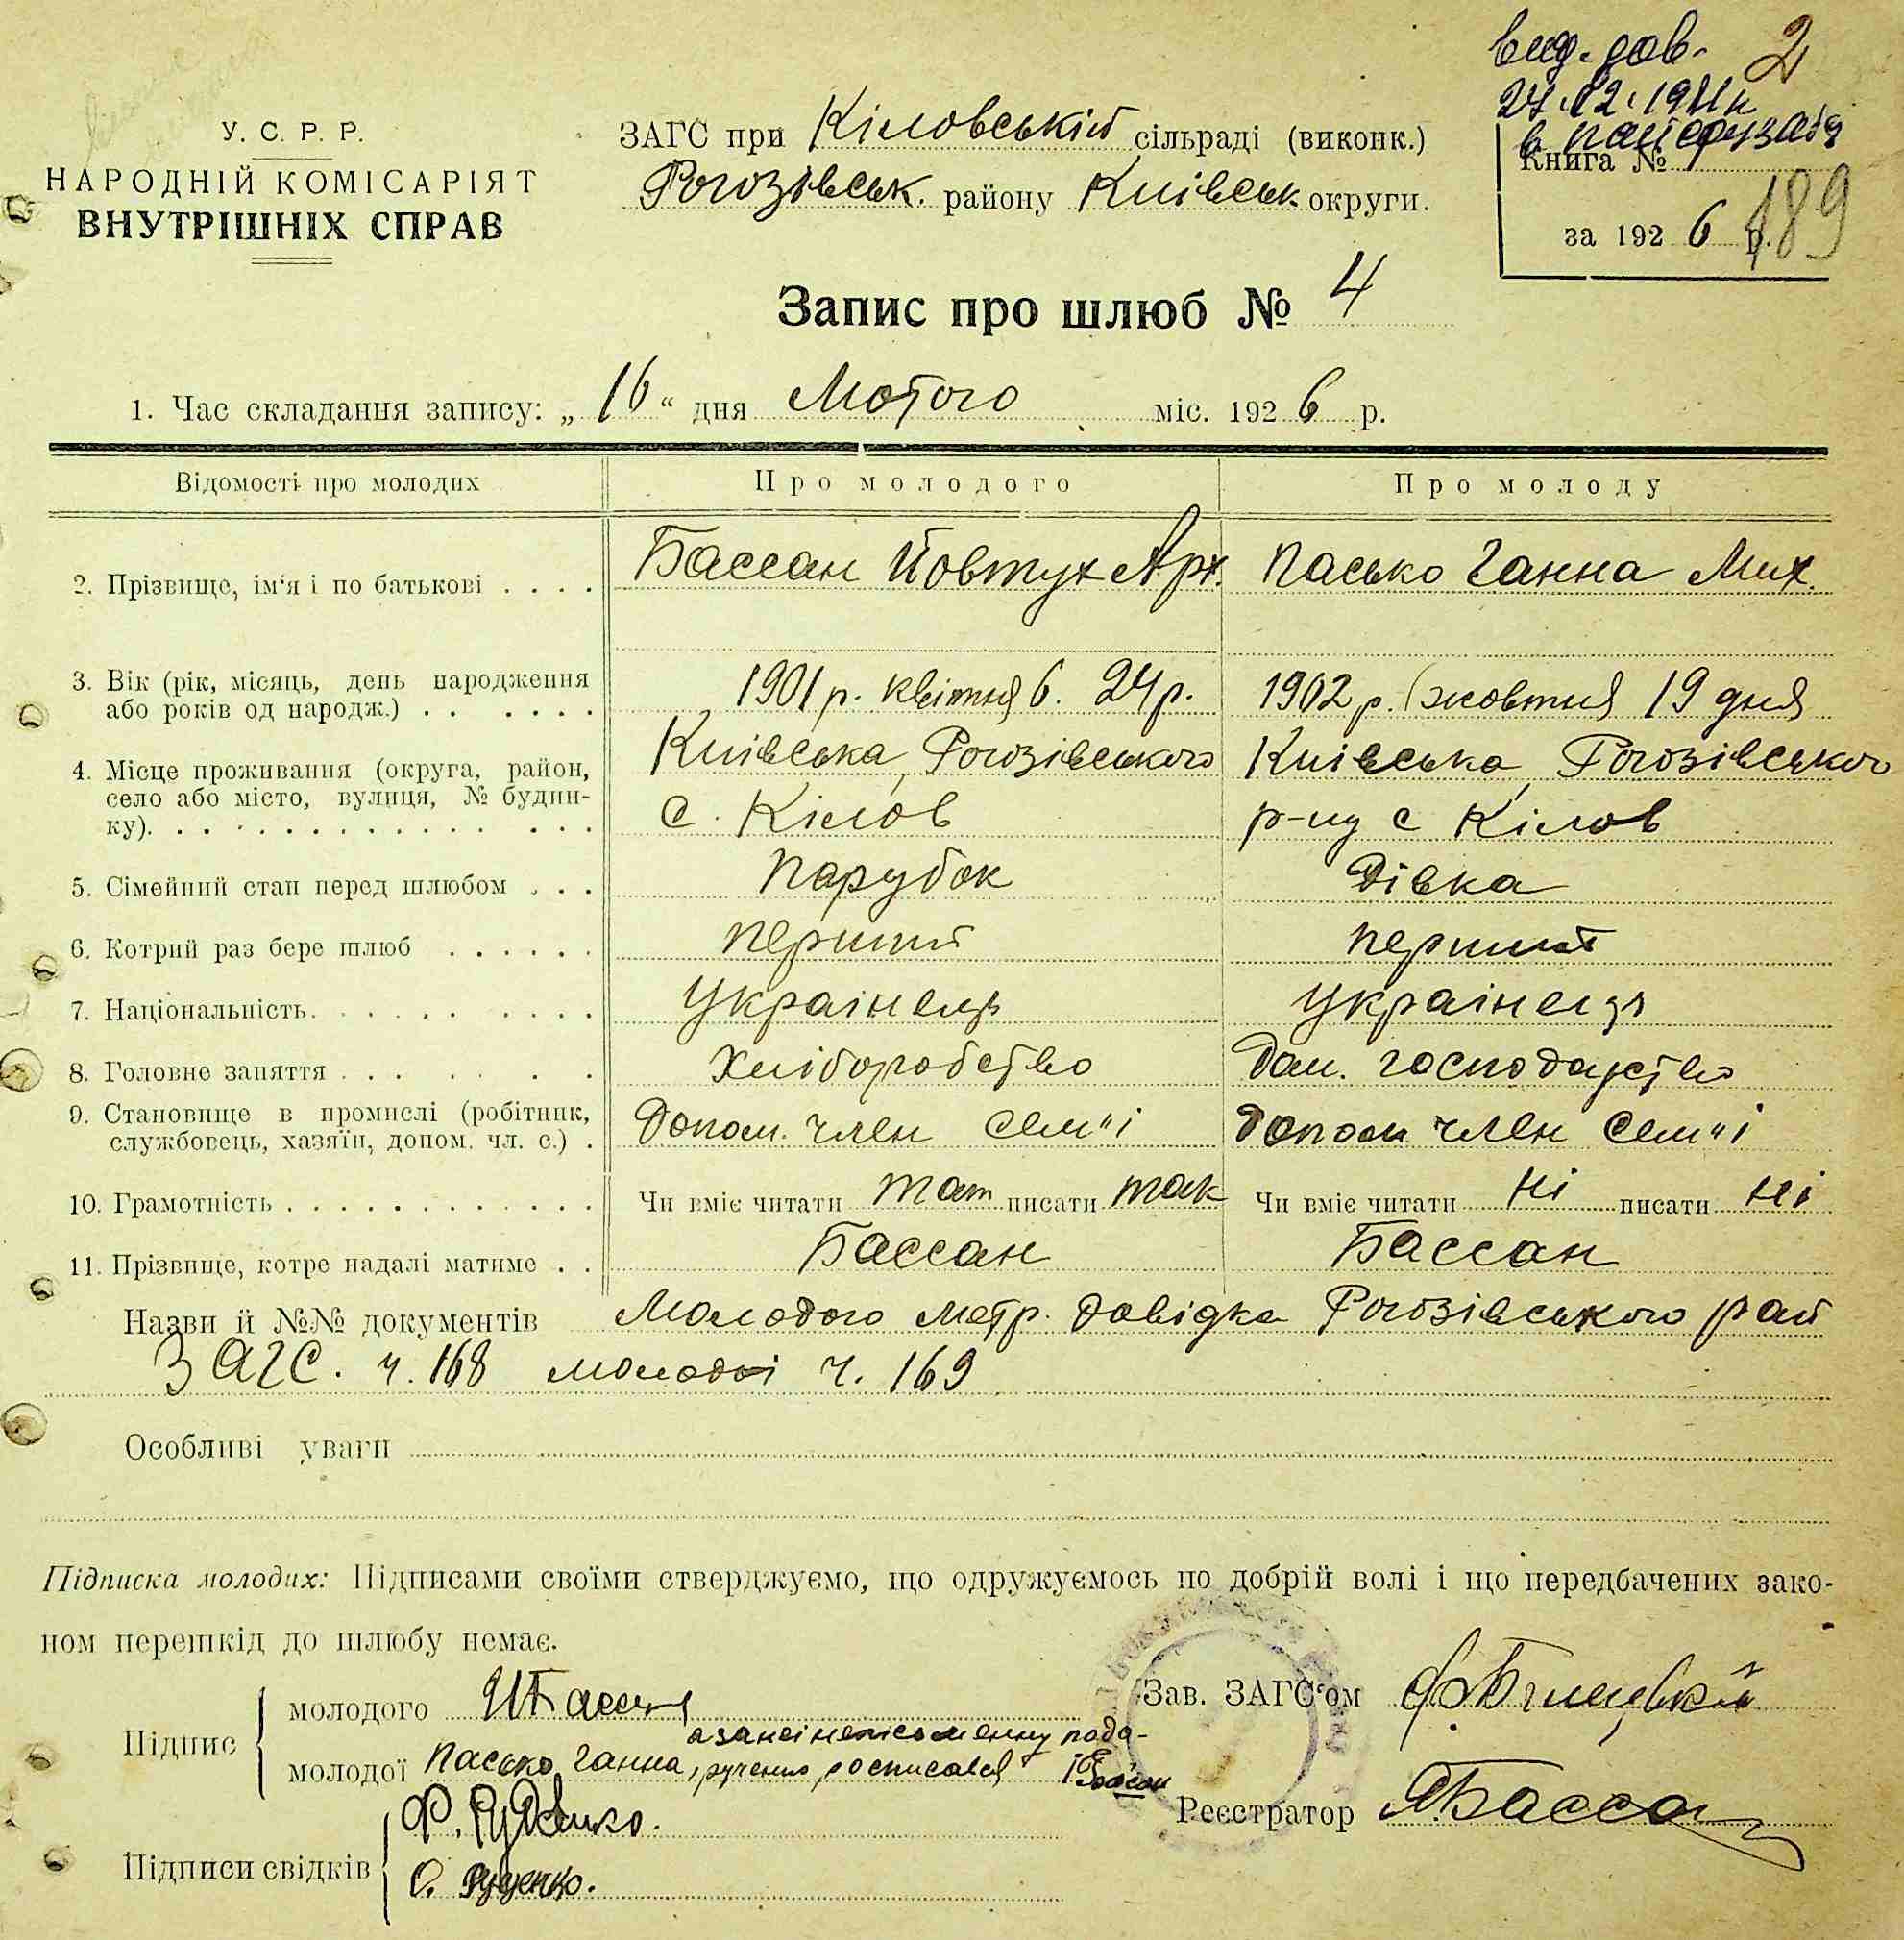 вид. дов. 2
27.12.1941р
У. С. Р. Р.
НАРОДНІЙ КОМІСАРІЯТ
ВНУТРІШНІХ СПРАВ
ЗАГС при Кіловській сільраді (виконк.)
Рогозівськ. району Київськ. округи.
Книга №
за 192 6 р. 189
Запис про шлюб № 4
1. Час складання запису: „ 16 “ дня Лютого міс. 192 6 р.
Відомості про молодих Про молодого Про молоду
2. Прізвище, ім‘я і по батькові . . . . Бассан Йовтух Арх. Пасько Ганна Мих.
3. Вік (рік, місяць, день народження
або років од народж.) . . . . . . . 1901 р. квітня 6. 24 р. 1902 р. жовтня 19 дня
4. Місце проживання (округа, район, Київська, Рогозівського Київська, Рогозівського
село або місто, вулиця, № будин-
ку). . . . . . . . . . . . . . . с. Кілов р-ну с Кілов
5. Сімейний стан перед шлюбом . . . Парубок Дівка
6. Котрий раз бере шлюб . . . . . . перший перший
7. Національність. . . . . . . . . . українець українець
8. Головне заняття . . . . . . . Хліборобство Дом. господарство
9. Становище в промислі (робітник,
службовець, хазяїн, допом. чл. с.) . Допом. член сем"і Допом член сем"і
10. Грамотність . . . . . . . . . . . . . Чи вміє читати так писати так Чи вміє читати ні писати ні
11. Прізвище, котре надалі матиме . . Бассан Бассан
Назви й №№ документів Молодого метр. довідка Рогозівського рай
ЗАГС. ч. 168 молодої ч. 169
Особливі уваги
Підписка молодих: Підписами своїми стверджуємо, що одружуємось по добрій волі і що передбачених зако-
ном перешкід до шлюбу немає.
Підпис
молодого Й Бассан
а за неї неписьменну подо-
молодої Пасько Ганна, ручению росписався
Підписи свідків
Ф. Руденко.
О. Руденко.
Зав. ЗАГС‘ом
Реєстратор Бассан